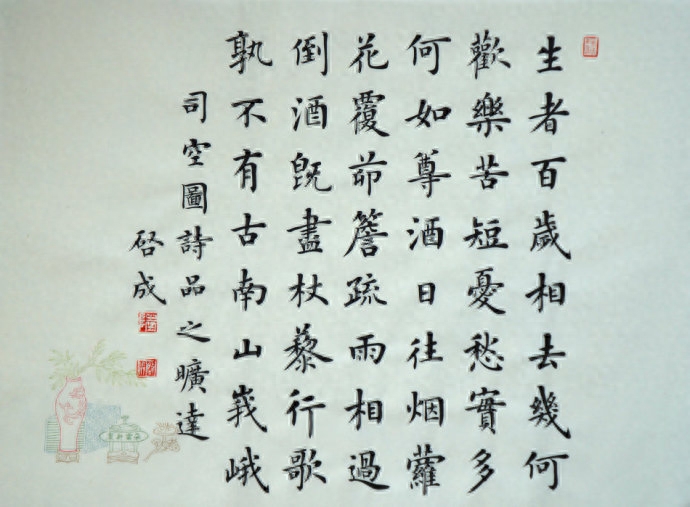 生者百歲相去幾何
歡樂苦短憂愁實多
何如尊酒日往烟蘿
花覆茆簷疏雨相過
倒酒旣盡杖藜行歌
孰不有古南山峩峨
司空圖詩品之曠達
啓成